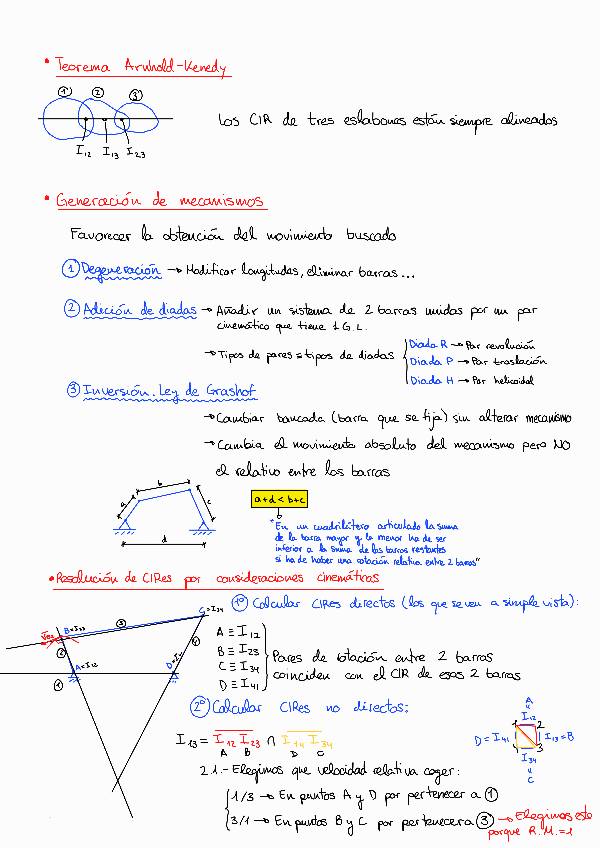 • Teorema Arnhold-Kenedy
1 2 3
I12 I13 I23
Los CIR de tres eslabones están siempre alineados
• Generación de mecanismos
Favorecer la obtención del movimiento buscado
1 Degeneración → Modificar longitudes, eliminar barras...
2 Adición de diadas → Añadir un sistema de 2 barras unidas por un par
cinemático que tiene 1 G.L.
→ Tipos de pares = tipos de diadas
Diada R → Par revolución
Diada P → Par traslación
Diada H → Par helicoidal
3 Inversión. Ley de Grashof
→ Cambiar bancada (barra que se fija) sin alterar mecanismo
→ Cambia el movimiento absoluto del mecanismo pero NO
el relativo entre las barras
a b c d
a+d < b+c
"En un cuadrilátero articulado la suma
de la barra mayor y la menor ha de ser
inferior a la suma de las barras restantes
si ha de haber una rotación relativa entre 2 barras"
• Resolución de CIRes por consideraciones cinemáticas
1º Calcular CIRes directos (los que se ven a simple vista):
A ≡ I12
B ≡ I23
C ≡ I34
D ≡ I41
Pares de rotación entre 2 barras
coinciden con el CIR de esas 2 barras
C=I34
B=I23
3
2
4
A=I12
1
2º Calcular CIRes no directos:
I13 = I12 I23 ∩ I14 I34
A B D C
A
I12
1 2
D = I41 I13 = B
3
I34
C
2.1.- Elegimos que velocidad relativa coger:
1/3 → En puntos A y D por pertenecer a 1
3/1 → En puntos B y C por pertenecer a 3 → Elegimos este
porque R.M.=1